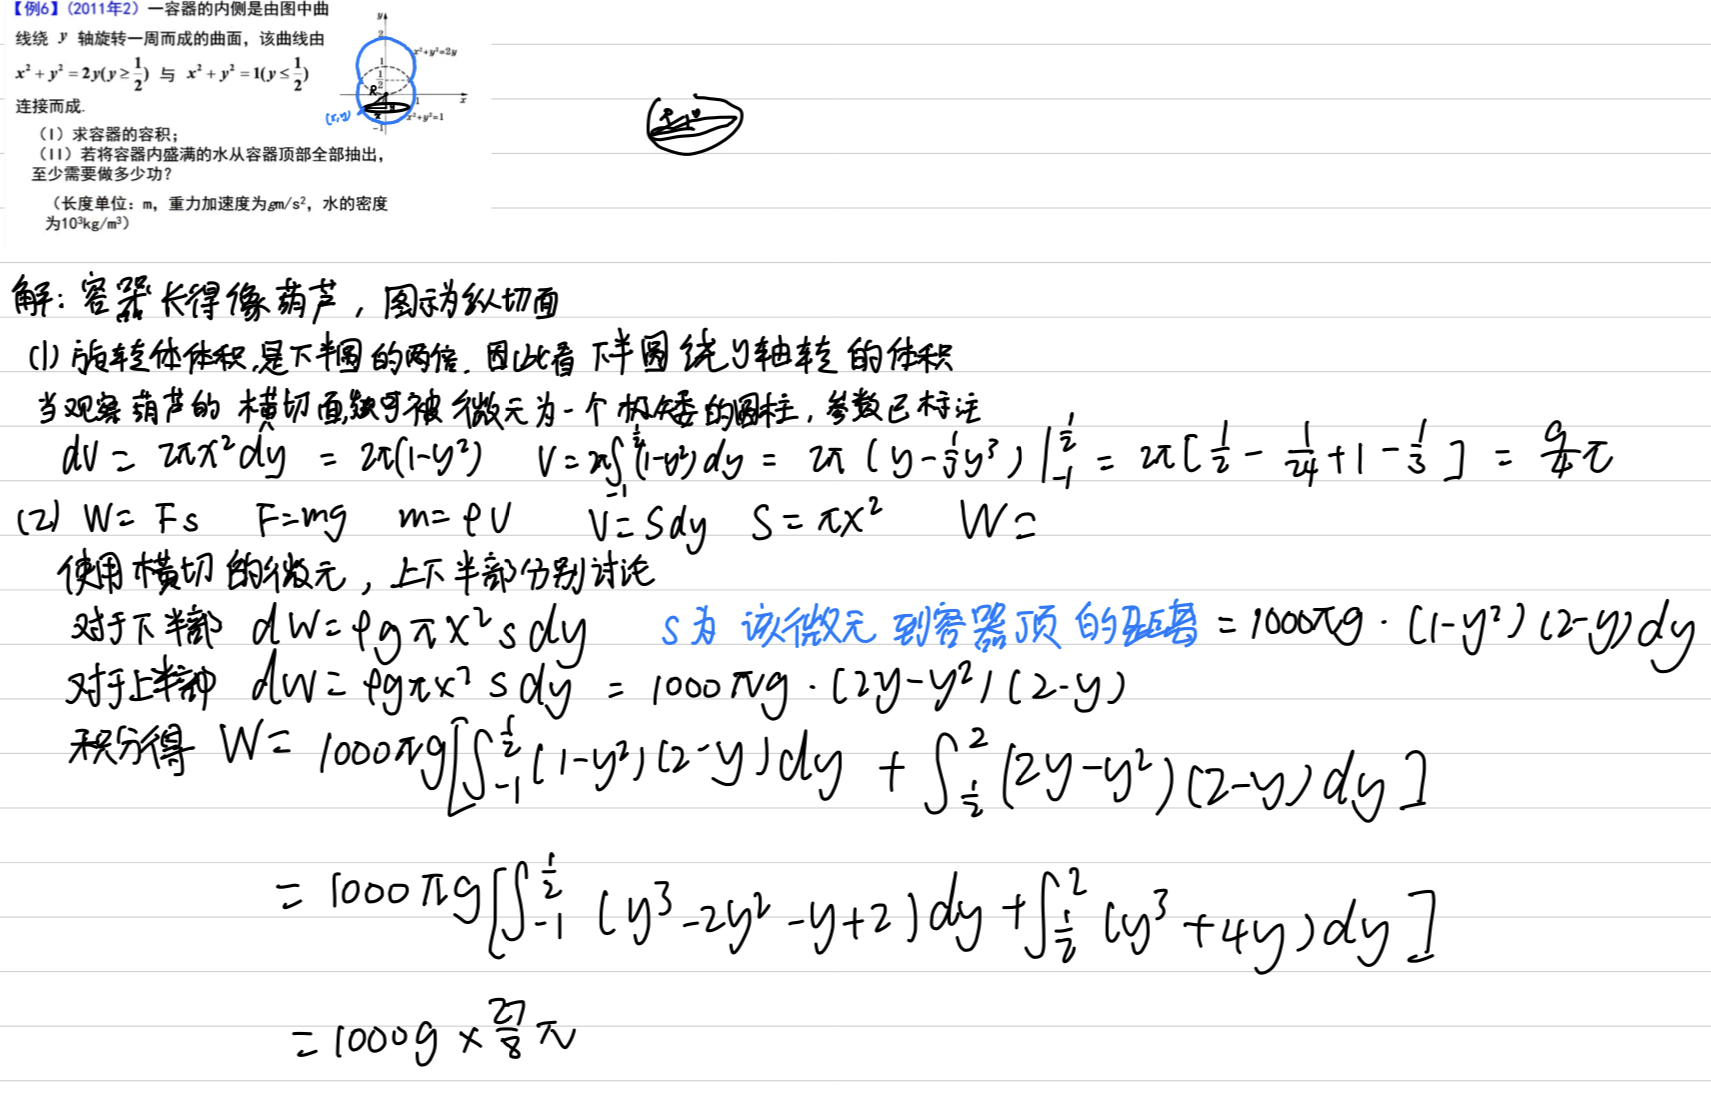 【例6】(2011年2) 一容器的内侧是由图中曲
线绕 y 轴旋转一周而成的曲面，该曲线由
x²+y²=2y(y≥1/2) 与 x²+y²=1(y≤1/2)
连接而成.
(I) 求容器的容积；
(II) 若将容器内盛满的水从容器顶部全部抽出，
至少需要做多少功？
(长度单位：m，重力加速度为gm/s²，水的密度
为10³kg/m³)
y
2
x²+y²=2y
1
1/2
R
1
x
(x,y)
x²+y²=1
-1
解：容器长得像葫芦，图示为纵切面
(1) 旋转体体积是下半圆的两倍. 因此看下半圆绕y轴转的体积
当观察葫芦的横切面,就可被微元为一个极矮的圆柱，参数已标注
dV = 2πx²dy = 2π(1-y²) V=2π∫_{-1}^{1/2}(1-y²)dy = 2π(y-1/3y³)|_{-1}^{1/2} = 2π[1/2-1/24+1-1/3] = 9/4π
(2) W=Fs F=mg m=ρV V=Sdy S=πx² W=
使用横切的微元，上下半部分别讨论
对于下半部 dW=ρgπx²sdy s为该微元到容器顶的距离 =1000πg·(1-y²)(2-y)dy
对于上半部 dW=ρgπx²sdy = 1000πg·(2y-y²)(2-y)
积分得 W= 1000πg[∫_{-1}^{1/2}(1-y²)(2-y)dy + ∫_{1/2}^{2}(2y-y²)(2-y)dy]
= 1000πg[∫_{-1}^{1/2}(y³-2y²-y+2)dy+∫_{1/2}^{2}(y³+4y)dy]
= 1000g×27/8π